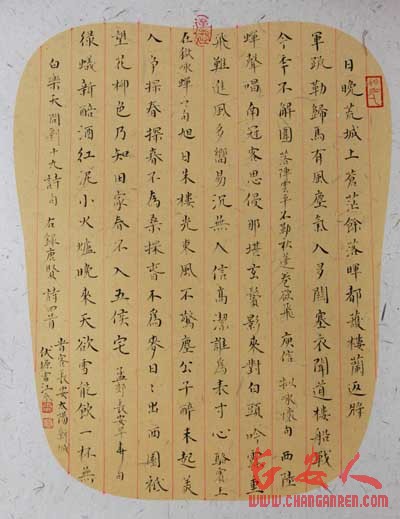 日晚荒城上蒼茫餘落暉都護樓蘭返將
軍疏勒歸馬有風塵氣人多關塞衣聞道樓船戰
今年不解圍 落陣雲平不動秋蓬卷欲飛 庾信 擬詠懷句 西陸
蟬聲唱南冠客思侵那堪玄鬢影來對白頭吟露重
飛難進風多響易沉無人信高潔誰為表寸心 駱賓王
在獄咏蟬句 旭日朱樓光東風不驚塵公子醉未起美
人爭探春探春不為桑探春不為麥日日出西園祇
望花柳色乃知田家春不入五侯宅 孟郊長安早春句
綠蟻新醅酒紅泥小火爐晚來天欲雪能飲一杯無
白樂天問劉十九詩句 右錄唐賢詩四首
長安太陽新城
长安人
WWW.CHANGANREN.COM